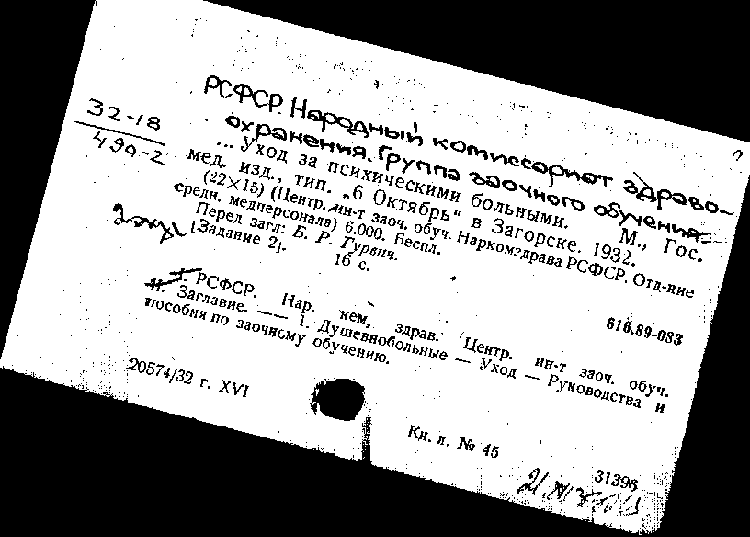 РСФСР. Народный комиссариат здраво-
охранения. Группа заочного обучения.
32-18
490-2
... Уход за психическими больными. М., Гос.
мед. изд., тип. „6 Октябрь“ в Загорске. 1932.
(22×15) (Центр. ин-т заоч. обуч. Наркомздрава РСФСР. Отд-ние
средн. медперсонала) 6.000. Беспл.
Перед загл: Б. Р. Гурвич.
(Задание 2). 16 с.
616.89-083
I. РСФСР. Нар. ком. здрав. Центр. ин-т заоч. обуч.
II. Заглавие. —— 1. Душевнобольные — Уход — Руководства и
пособия по заочному обучению.
20574/32 г. XVI
Кн. л. № 45
31396